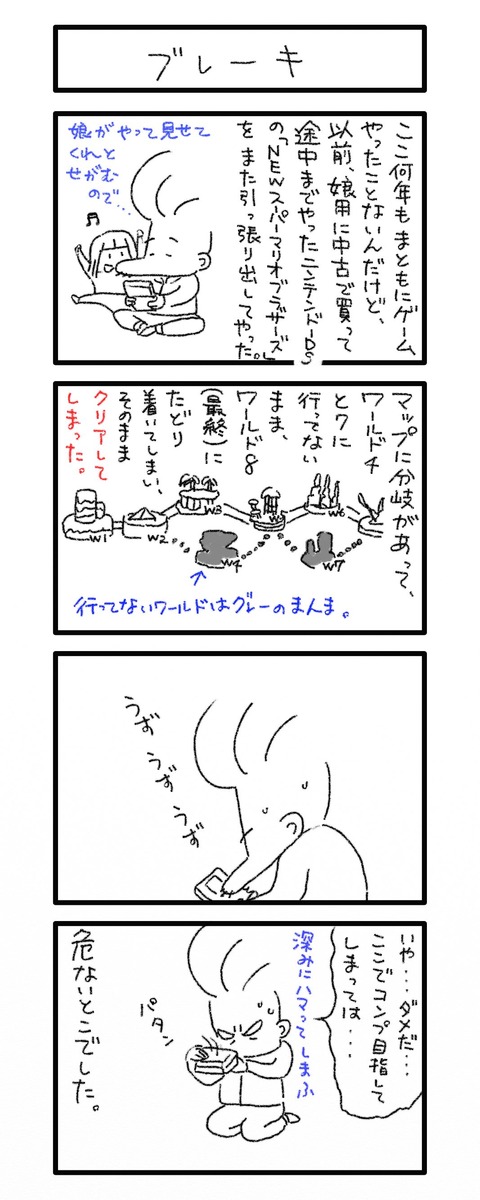 ブレーキ
ここ何年もまともにゲーム
やったことないんだけど、
以前、娘用に中古で買って
途中までやったニンテンドーDS
の「NEWスーパーマリオブラザーズ」
をまた引っ張り出してやった。
娘がやって見せて
くれと
せがむ
ので…
♬
マップに分岐があって、
ワールド4
と7に
行ってない
まま、
ワールド8
(最終)に
たどり
着いてしまい、
そのまま
クリアして
しまった。
W1
W2
W3
W4
W5
W6
W7
行ってないワールドはグレーのまんま。
うず
うず
うず
いや・・・ダメだ・・・
ここでコンプ目指して
しまっては・・・
深みにハマってしまふ
パタン
危ないとこでした。